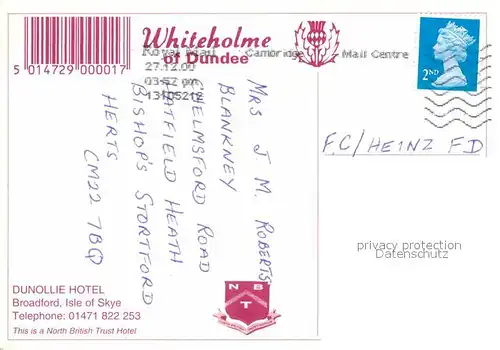 Whiteholme
of Dundee
5 014729 000017
Royal Mail Cambridge Mail Centre
27.12.00
03:57 pm
13105212
2ND
MRS J M. ROBERTS
BLANKNEY
CHELMSFORD ROAD
HATFIELD HEATH
BISHOP'S STORTFORD
HERTS
CM22 7BQ
F.C/HEINZ F D
privacy protection
DUNOLLIE HOTEL
Broadford, Isle of Skye
Telephone: 01471 822 253
This is a North British Trust Hotel
N B
T